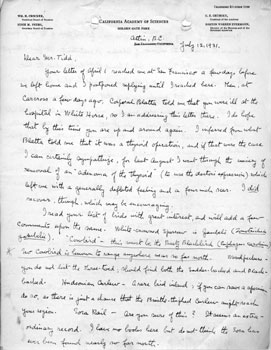 CALIFORNIA ACADEMY OF SCIENCES
GOLDEN GATE PARK
Atlin, B.C.
July 12, 1931.
Dear Mr. Tidd:
Your letter of April 1 reached me at San Francisco a few days before
we left home and I postponed replying until I reached here. Then, at
Carcross a few days ago, Corporal told me that you were ill at the
hospital in White Horse, so I am addressing this letter there. I do hope
that by this time you are up and around again. I inferred from what
told me that it was a thyroid operation, and if that were the case
I can certainly sympathize, for last August I went through the misery of
removal of an "adenoma of the thyroid" (to use the doctor's expression) which
left me with a generally defeated feeling and a four-inch scar. I did
recover, though, which may be encouraging.
I read your list of birds with great interest, and will add a few
comments upon the same. White-crowned Sparrow is Gambel's (Zonotrichia
gambeli). "Cowbird" – this must be the Rusty Blackbird (Euphagus carolinus).
No Cowbird is known to range anywhere near so far north. Woodpeckers –
you do not list the Three-toed; should find both the Ladder-backed and Black-
backed. Hudsonian Curlew – a rare bird inland; if you can save a specimen
do so, as there is just a chance that the Bristle-thighed Curlew might reach
your region. Sora Rail – Are you sure of this? It seems an extra-
ordinary record. I have no books here but do not think the Sora has
ever been found nearly so far north.